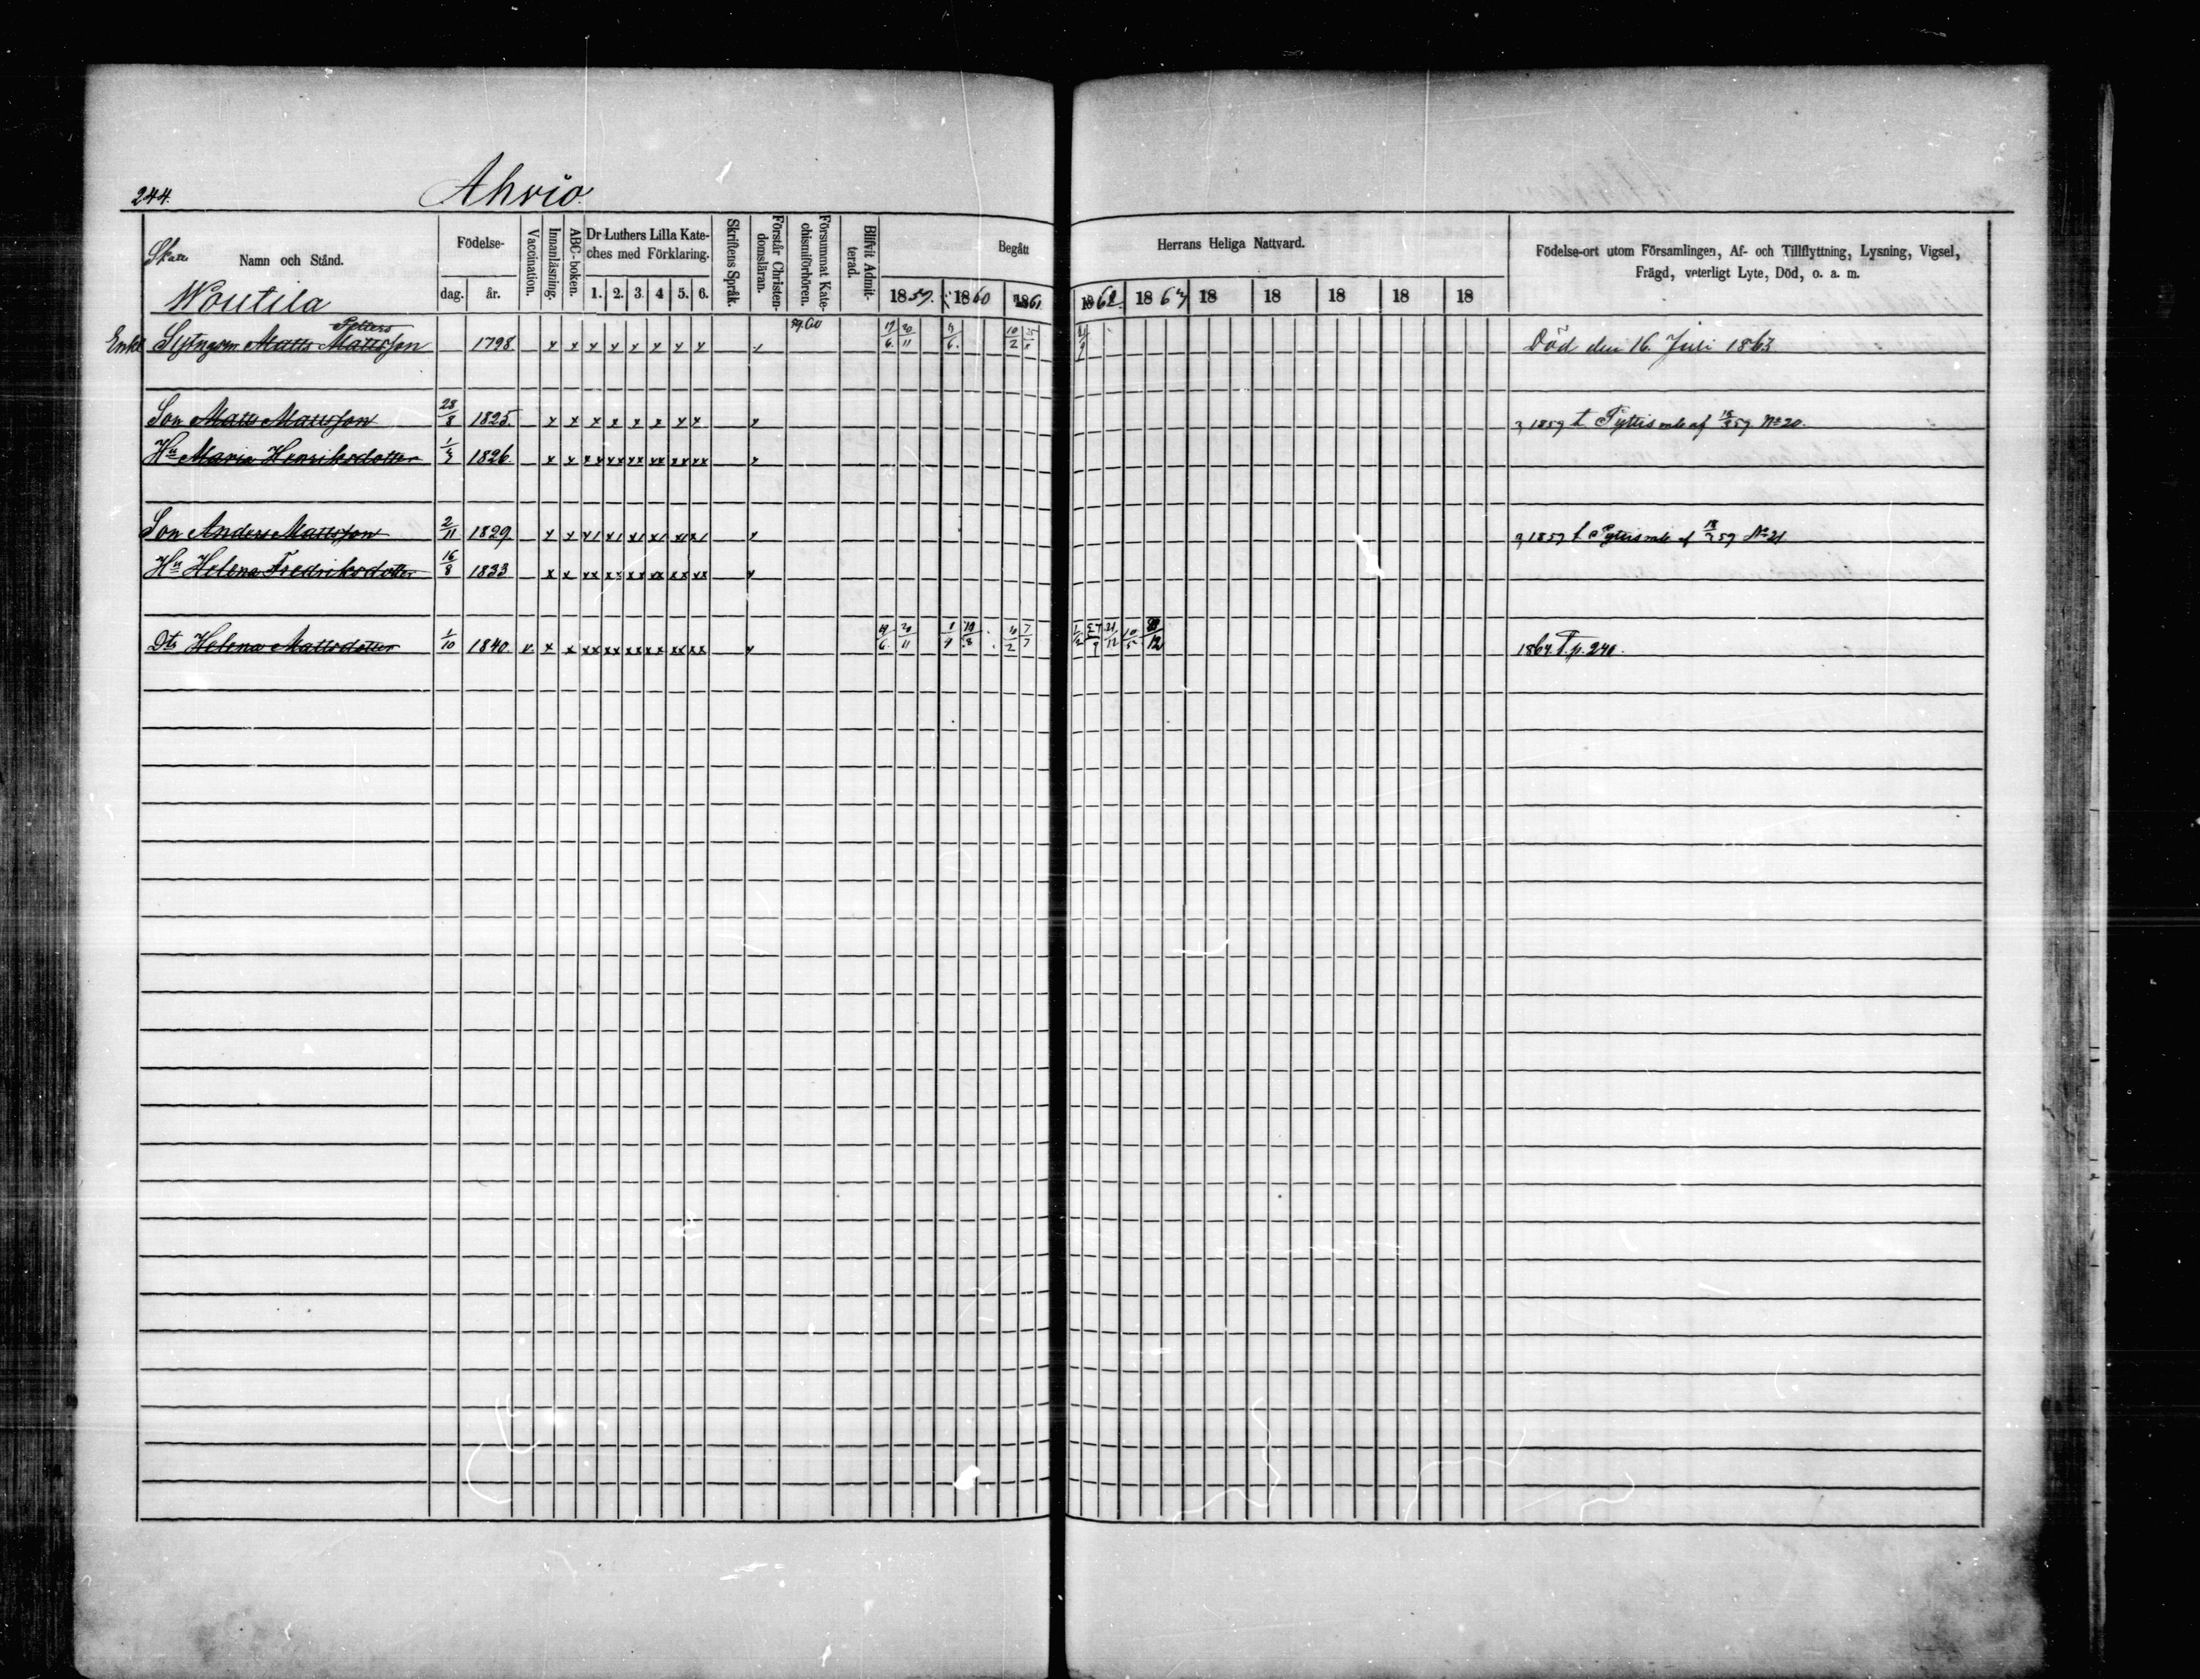 244.
Ahvio.
Skatte
Namn och Stånd.
Woutila
Födelse-
dag. år.
Vaccination.
Innanläsning.
ABC-boken.
Dr Luthers Lilla Kate-
ches med Förklaring.
1. 2. 3. 4 5. 6.
Skriftens Språk.
Förstår Christen-
domsläran.
Försummat Kate-
chismiförhören.
Blifvit Admit-
terad.
Begått
Herrans Heliga Nattvard.
1859. 1860 1861 1862 1863 18 18 18 18 18
Födelse-ort utom Församlingen, Af- och Tillflyttning, Lysning, Vigsel,
Frägd, veterligt Lyte, Död, o. a. m.
Petters
Enkl Sytngsm Matts Mattsson 1798 x x x x x x x x 59.60 19/6 20/11 10/2 Död den 16. Juli 1863
Son Matts Mattsson 28/8 1825. x x x x x x x x 1859 t. Pyttis 59 No 20.
Hu Maria Henriksdotter 1826 x x xx xx xx xx xx xx
Son Anders Mattsson 2/11 1829 x x 1859 t Pyttis 59 No 21
Hu Helena Fredriksdotter 16/8 1833 x x xx xx xx xx xx xx
Dtr Helena Mattsdotter 1/10 1840 x x x xx xx xx xx xx xx 19/6 20/11 7/7 31/12 1864 T. p. 240.